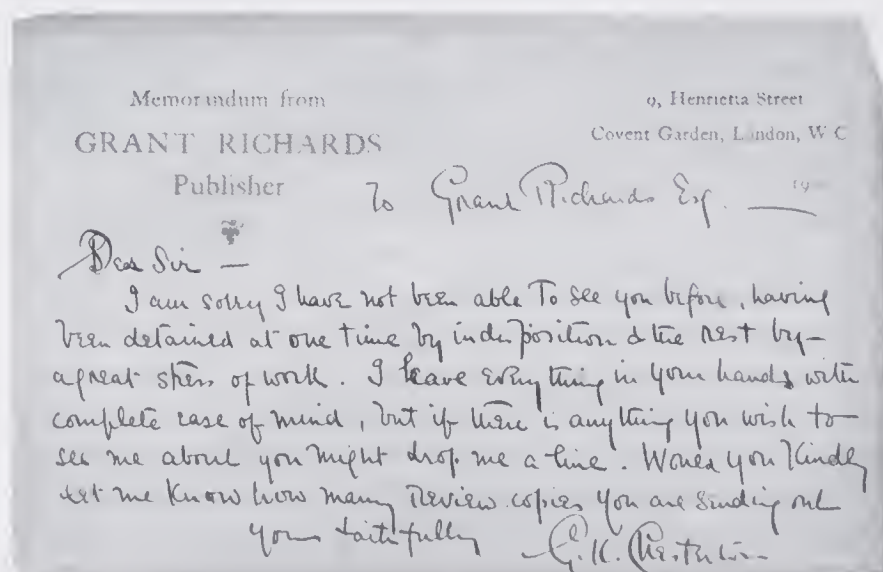 Memorandum from
GRANT RICHARDS
Publisher
9, Henrietta Street
Covent Garden, London, W C
To Grant Richards Esq. — 19
Dear Sir —
I am sorry I have not been able to see you before, having
been detained at one time by indisposition & the rest by
a great stress of work. I leave everything in your hands with
complete ease of mind, but if there is anything you wish to
see me about you might drop me a line. Would you kindly
let me know how many Review copies you are sending out
yours faithfully
G. K. Chesterton